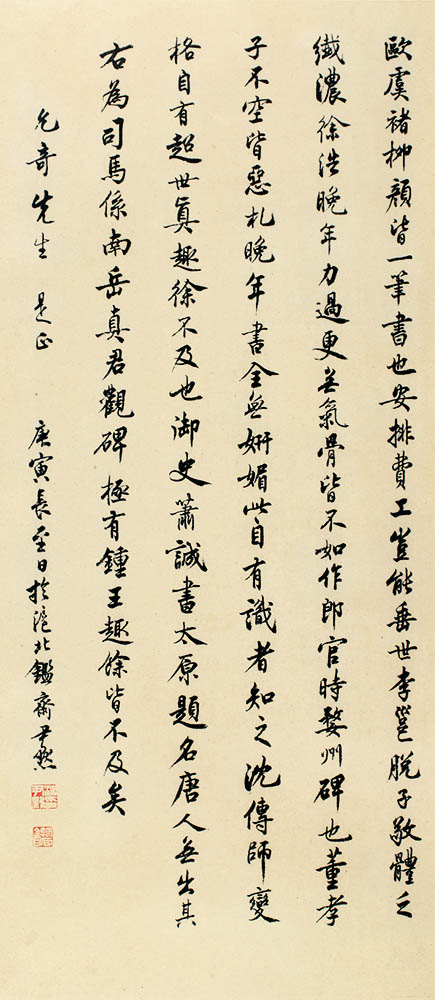 歐虞褚柳顏皆一筆書也安排費工豈能垂世李邕脫子敬體乏
纖濃徐浩晚年力過更無氣骨皆不如作郎官時婺州碑也董孝
子不空皆惡札晚年書全無妍媚此自有識者知之沈傳師變
格自有超世真趣徐不及也御史蕭誠書太原題名唐人無出其
右為司馬係南岳真君觀碑極有鍾王趣餘皆不及矣
允奇先生 是正
庚寅長至日於滬北鑑齋尹默